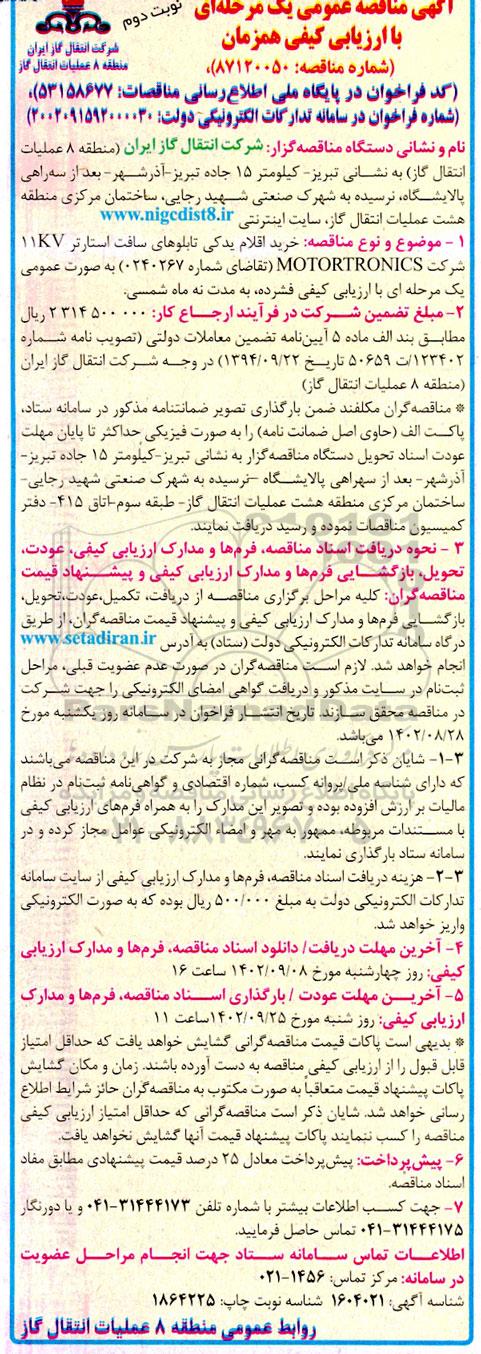 آگهی مناقصه عمومی یک مرحله‌ای
نوبت دوم
با ارزیابی کیفی همزمان
شرکت انتقال گاز ایران
منطقه ۸ عملیات انتقال گاز
(شماره مناقصه: ۸۷۱۲۰۰۵۰)،
(کد فراخوان در پایگاه ملی اطلاع‌رسانی مناقصات: ۵۳۱۵۸۶۷۷)،
(شماره فراخوان در سامانه تدارکات الکترونیکی دولت: ۲۰۰۲۰۹۱۵۹۲۰۰۰۰۳۰)
نام و نشانی دستگاه مناقصه‌گزار: شرکت انتقال گاز ایران (منطقه ۸ عملیات
انتقال گاز) به نشانی تبریز- کیلومتر ۱۵ جاده تبریز-آذرشهر- بعد از سه‌راهی
پالایشگاه، نرسیده به شهرک صنعتی شهید رجایی، ساختمان مرکزی منطقه
هشت عملیات انتقال گاز، سایت اینترنتی www.nigcdist8.ir
۱ - موضوع و نوع مناقصه: خرید اقلام یدکی تابلوهای سافت استارتر ۱۱KV
شرکت MOTORTRONICS (تقاضای شماره ۰۲۴۰۲۶۷) به صورت عمومی
یک مرحله ای با ارزیابی کیفی فشرده، به مدت نه ماه شمسی.
۲- مبلغ تضمین شرکت در فرآیند ارجاع کار: ۲ ۳۱۴ ۵۰۰ ۰۰۰ ریال
مطابق بند الف ماده ۵ آیین‌نامه تضمین معاملات دولتی (تصویب نامه شماره
۱۲۳۴۰۲/ت ۵۰۶۵۹ تاریخ ۱۳۹۴/۰۹/۲۲) در وجه شرکت انتقال گاز ایران
(منطقه ۸ عملیات انتقال گاز)
* مناقصه‌گران مکلفند ضمن بارگذاری تصویر ضمانتنامه مذکور در سامانه ستاد،
پاکت الف (حاوی اصل ضمانت نامه) را به صورت فیزیکی حداکثر تا پایان مهلت
عودت اسناد تحویل دستگاه مناقصه‌گزار به نشانی تبریز-کیلومتر ۱۵ جاده تبریز-
آذرشهر- بعد از سهراهی پالایشگاه -نرسیده به شهرک صنعتی شهید رجایی-
ساختمان مرکزی منطقه هشت عملیات انتقال گاز- طبقه سوم-اتاق ۴۱۵- دفتر
کمیسیون مناقصات نموده و رسید دریافت نمایند.
۳ - نحوه دریافت اسناد مناقصه، فرم‌ها و مدارک ارزیابی کیفی، عودت،
تحویل، بازگشایی فرم‌ها و مدارک ارزیابی کیفی و پیشنهاد قیمت
مناقصه‌گران: کلیه مراحل برگزاری مناقصه از دریافت، تکمیل،عودت،تحویل،
بازگشایی فرم‌ها و مدارک ارزیابی کیفی و پیشنهاد قیمت مناقصه‌گران، از طریق
درگاه سامانه تدارکات الکترونیکی دولت (ستاد) به آدرس www.setadiran.ir
انجام خواهد شد. لازم است مناقصه‌گران در صورت عدم عضویت قبلی، مراحل
ثبت‌نام در سایت مذکور و دریافت گواهی امضای الکترونیکی را جهت شرکت
در مناقصه محقق سازند. تاریخ انتشار فراخوان در سامانه روز یکشنبه مورخ
۱۴۰۲/۰۸/۲۸ می‌باشد.
۳-۱- شایان ذکر است مناقصه‌گرانی مجاز به شرکت در این مناقصه می‌باشند
که دارای شناسه ملی/پروانه کسب، شماره اقتصادی و گواهی‌نامه ثبت‌نام در نظام
مالیات بر ارزش افزوده بوده و تصویر این مدارک را به همراه فرم‌های ارزیابی کیفی
با مستندات مربوطه، ممهور به مهر و امضاء الکترونیکی عوامل مجاز کرده و در
سامانه ستاد بارگذاری نمایند.
۳-۲- هزینه دریافت اسناد مناقصه، فرم‌ها و مدارک ارزیابی کیفی از سایت سامانه
تدارکات الکترونیکی دولت به مبلغ ۵۰۰/۰۰۰ ریال بوده که به صورت الکترونیکی
واریز خواهد شد.
۴- آخرین مهلت دریافت/ دانلود اسناد مناقصه، فرم‌ها و مدارک ارزیابی
کیفی: روز چهارشنبه مورخ ۱۴۰۲/۰۹/۰۸ ساعت ۱۶
۵- آخرین مهلت عودت / بارگذاری اسناد مناقصه، فرم‌ها و مدارک
ارزیابی کیفی: روز شنبه مورخ ۱۴۰۲/۰۹/۲۵ساعت ۱۱
* بدیهی است پاکات قیمت مناقصه‌گرانی گشایش خواهد یافت که حداقل امتیاز
قابل قبول را از ارزیابی کیفی مناقصه به دست آورده باشند. زمان و مکان گشایش
پاکات پیشنهاد قیمت متعاقباً به صورت مکتوب به مناقصه‌گران حائز شرایط اطلاع
رسانی خواهد شد. شایان ذکر است مناقصه‌گرانی که حداقل امتیاز ارزیابی کیفی
مناقصه را کسب ننمایند پاکات پیشنهاد قیمت آنها گشایش نخواهد یافت.
۶- پیش‌پرداخت: پیش‌پرداخت معادل ۲۵ درصد قیمت پیشنهادی مطابق مفاد
اسناد مناقصه.
۷- جهت کسب اطلاعات بیشتر با شماره تلفن ۳۱۴۴۴۱۷۳-۰۴۱ و یا دورنگار
۳۱۴۴۴۱۷۵-۰۴۱ تماس حاصل فرمایید.
اطلاعات تماس سامانه ستاد جهت انجام مراحل عضویت
در سامانه: مرکز تماس: ۱۴۵۶-۰۲۱
شناسه آگهی: ۱۶۰۴۰۲۱ شناسه نوبت چاپ: ۱۸۶۴۲۲۵
روابط عمومی منطقه ۸ عملیات انتقال گاز